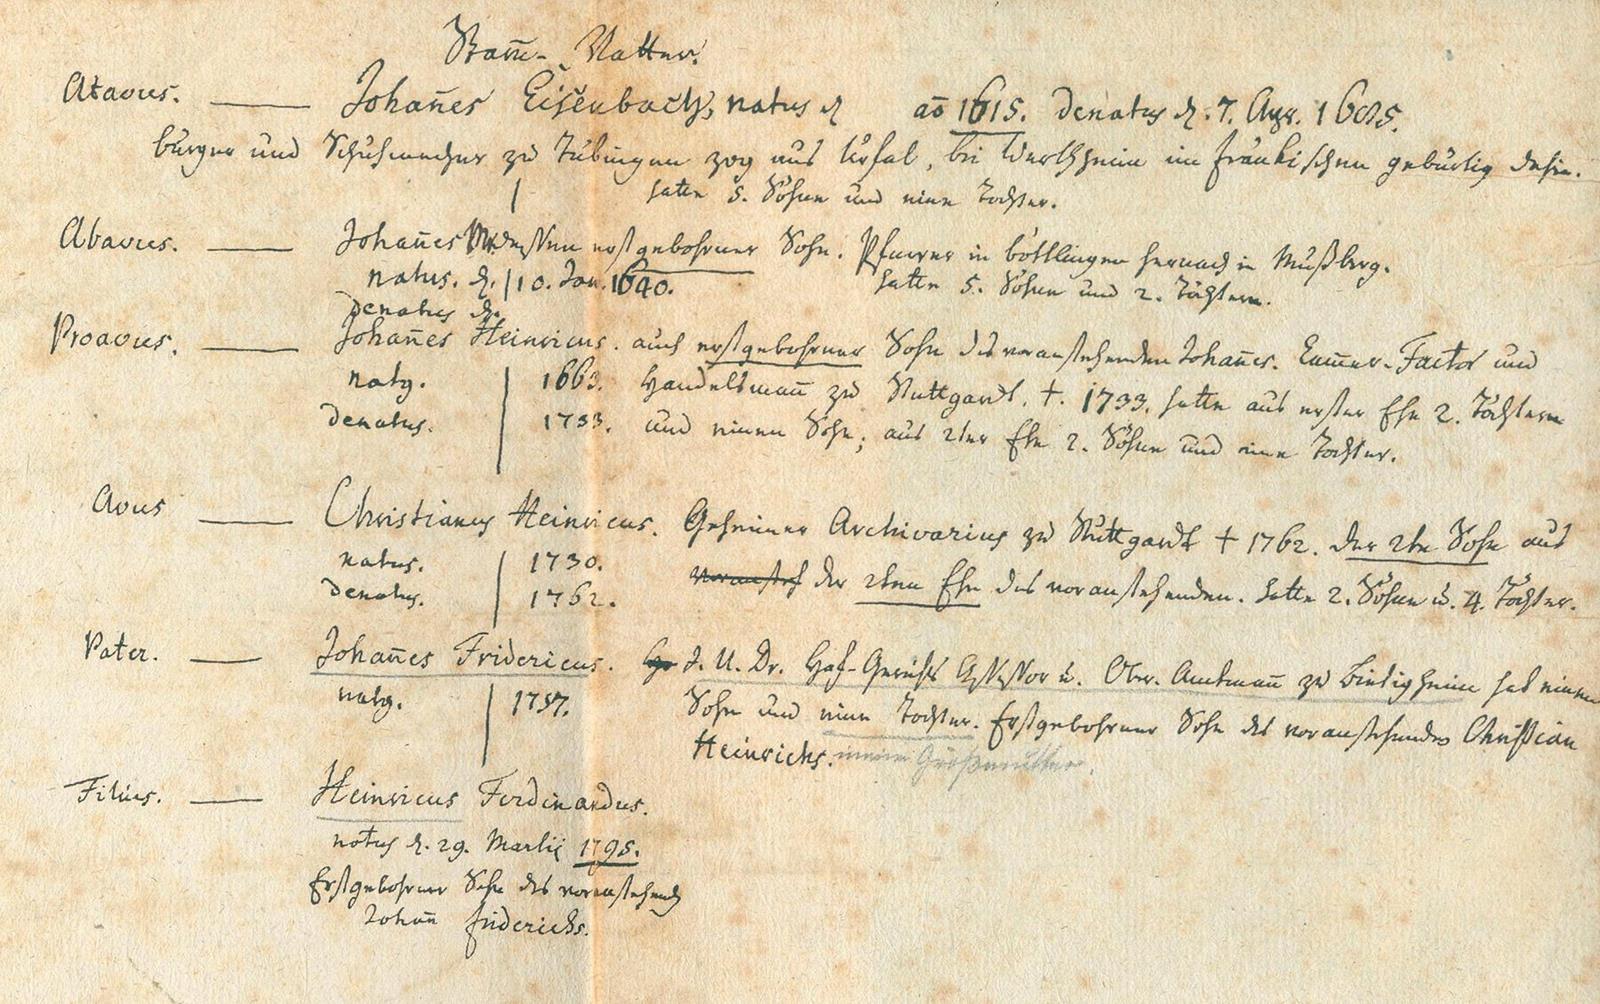 Stam̄-Vatter.
Atavus. — Johan̄es Eisenbach, natus d. ao 1615. denatus d. 7. Apr. 1685.
burger und Schuhmacher zu Tübingen zog aus Urfal, bei Wertheim im fränkischen gebürtig dahin.
hatte 5. Söhne und eine Tochter.
Abavus. — Johan̄es dessen erstgebohrner Sohn. Pfarrer in böttlingen hernach in Mußberg.
natus. d. 10. Jan. 1640. hatte 5. Söhne und 2. Töchtern.
denatus d.
Proavus. — Johan̄es Heinricus. auch erstgebohrner Sohn des voranstehenden Johan̄es. Cam̄er-Factor und
natq. 1663. Handelsman̄ zu Stuttgardt. †. 1733. hatte aus erster Ehe 2. Töchtern
denatus. 1733. und einen Sohn; aus 2ter Ehe 2. Söhne und eine Tochter.
Avus — Christianus Heinricus. Geheimer Archivarius zu Stuttgardt † 1762. der 2te Sohn aus
natus. 1730. voransteh der 2ten Ehe des voranstehenden. hatte 2. Söhne u. 4. Töchter.
denatus. 1762.
Pater. — Johan̄es Fridericus. J. U. Dr. Hof-Gerichts Assessor u. Ober-Amtman̄ zu Bietigheim hat einen
natq. 1757. Sohn und eine Tochter. Erstgebohrner Sohn des voranstehenden Christian
Heinrichs. meine Großmutter.
Filius. — Heinricus Ferdinandus.
natus d. 29. Martii 1795.
Erstgebohrner Sohn des voranstehend
Johan̄ friderichs.